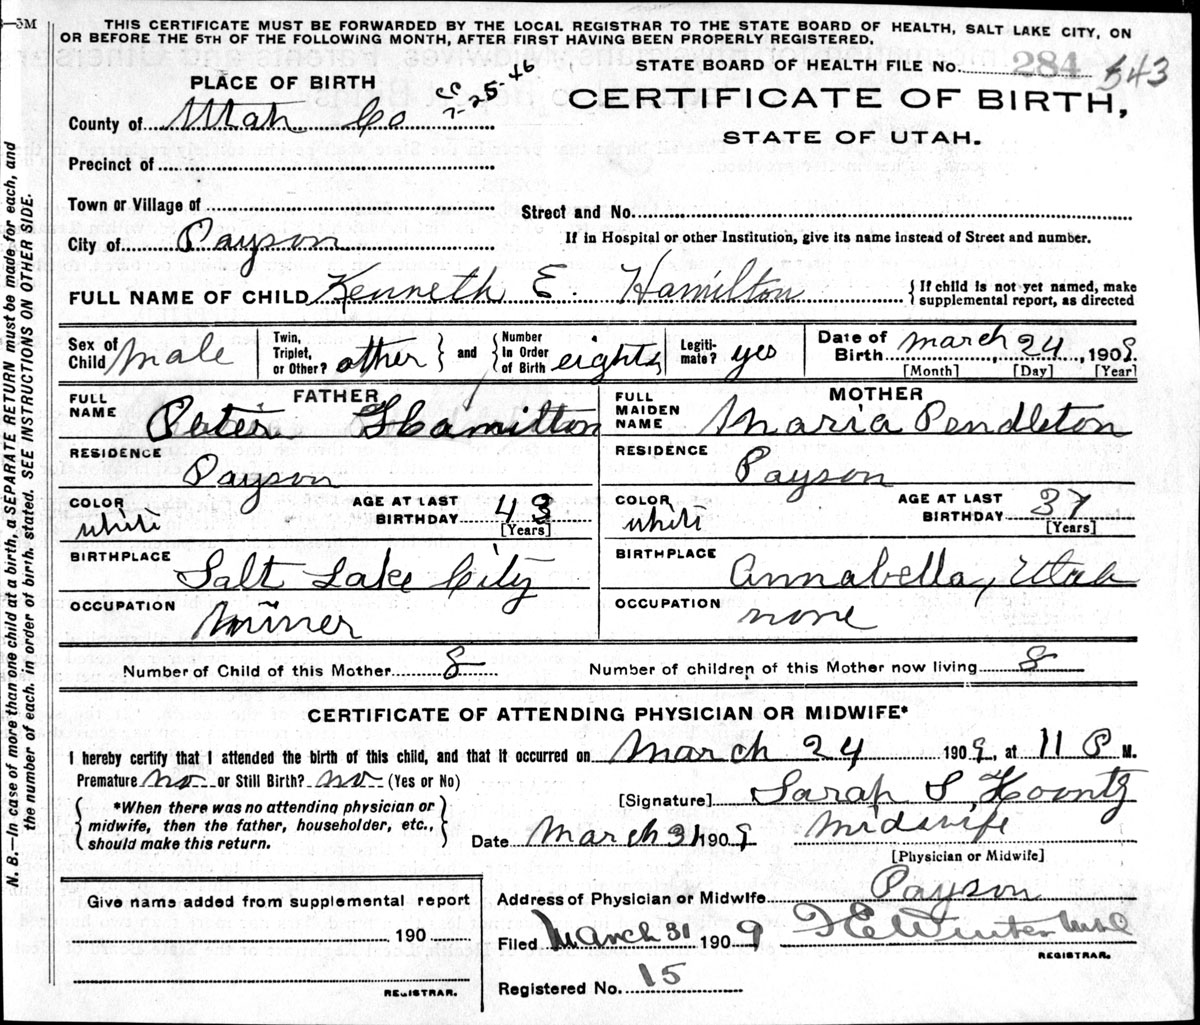 S—3M
THIS CERTIFICATE MUST BE FORWARDED BY THE LOCAL REGISTRAR TO THE STATE BOARD OF HEALTH, SALT LAKE CITY, ON
OR BEFORE THE 5TH OF THE FOLLOWING MONTH, AFTER FIRST HAVING BEEN PROPERLY REGISTERED.
STATE BOARD OF HEALTH FILE No. 284 543
PLACE OF BIRTH
7-25-46
CERTIFICATE OF BIRTH,
STATE OF UTAH.
County of Utah Co
Precinct of
Town or Village of
Street and No.
City of Payson
If in Hospital or other Institution, give its name instead of Street and number.
FULL NAME OF CHILD Kenneth E. Hamilton { If child is not yet named, make
supplemental report, as directed
Sex of Child Male
Twin, Triplet, or Other? other } and { Number In Order of Birth eights
Legiti-mate? yes
Date of Birth March 24, 1909
[Month] [Day] [Year]
FATHER
FULL NAME Peter Hamilton
MOTHER
FULL MAIDEN NAME Maria Pendleton
RESIDENCE Payson
RESIDENCE Payson
COLOR white AGE AT LAST BIRTHDAY 43 [Years]
COLOR white AGE AT LAST BIRTHDAY 37 [Years]
BIRTHPLACE Salt Lake City
BIRTHPLACE Annabella, Utah
OCCUPATION Miner
OCCUPATION none
Number of Child of this Mother 8
Number of children of this Mother now living 8
CERTIFICATE OF ATTENDING PHYSICIAN OR MIDWIFE*
I hereby certify that I attended the birth of this child, and that it occurred on March 24 1909, at 11 P M.
Premature no or Still Birth? no (Yes or No)
[Signature] Sarah S. Koontz
{ *When there was no attending physician or
midwife, then the father, householder, etc.,
should make this return. }
Date March 31 1909 midwife
[Physician or Midwife]
Address of Physician or Midwife Payson
Give name added from supplemental report
190
REGISTRAR.
Filed March 31 1909 Winter
REGISTRAR.
Registered No. 15
N. B.—In case of more than one child at a birth, a SEPARATE RETURN must be made for each, and
the number of each, in order of birth, stated. SEE INSTRUCTIONS ON OTHER SIDE.